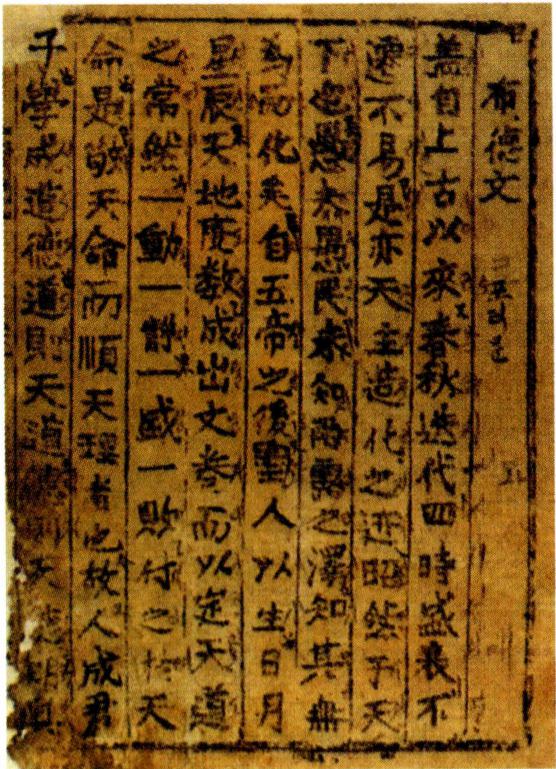 布德文
盖自上古以來春秋迭代四時盛衰不
遷不易是亦天主造化之迹昭然于天
下也愚夫愚民未知雨露之澤知其無
爲而化矣自五帝之後聖人以生日月
星辰天地度數成出文卷而以定天道
之常然一動一靜一盛一敗付之於天
命是敬天命而順天理者也故人成君
子學成道德道則天道德則天德